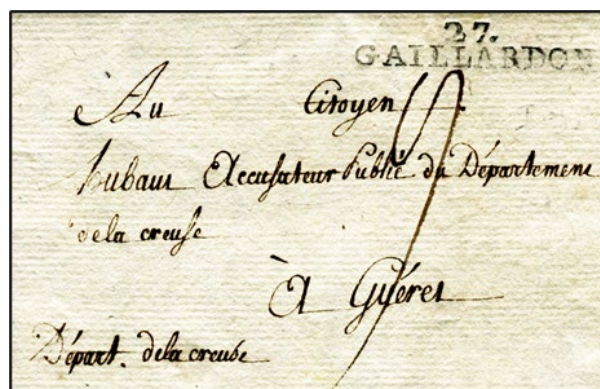 27.
GAILLARDON
Au Citoyen
hubaut Accusateur Public du Département
de la creuse
à Guéret
Départ. de la creuse